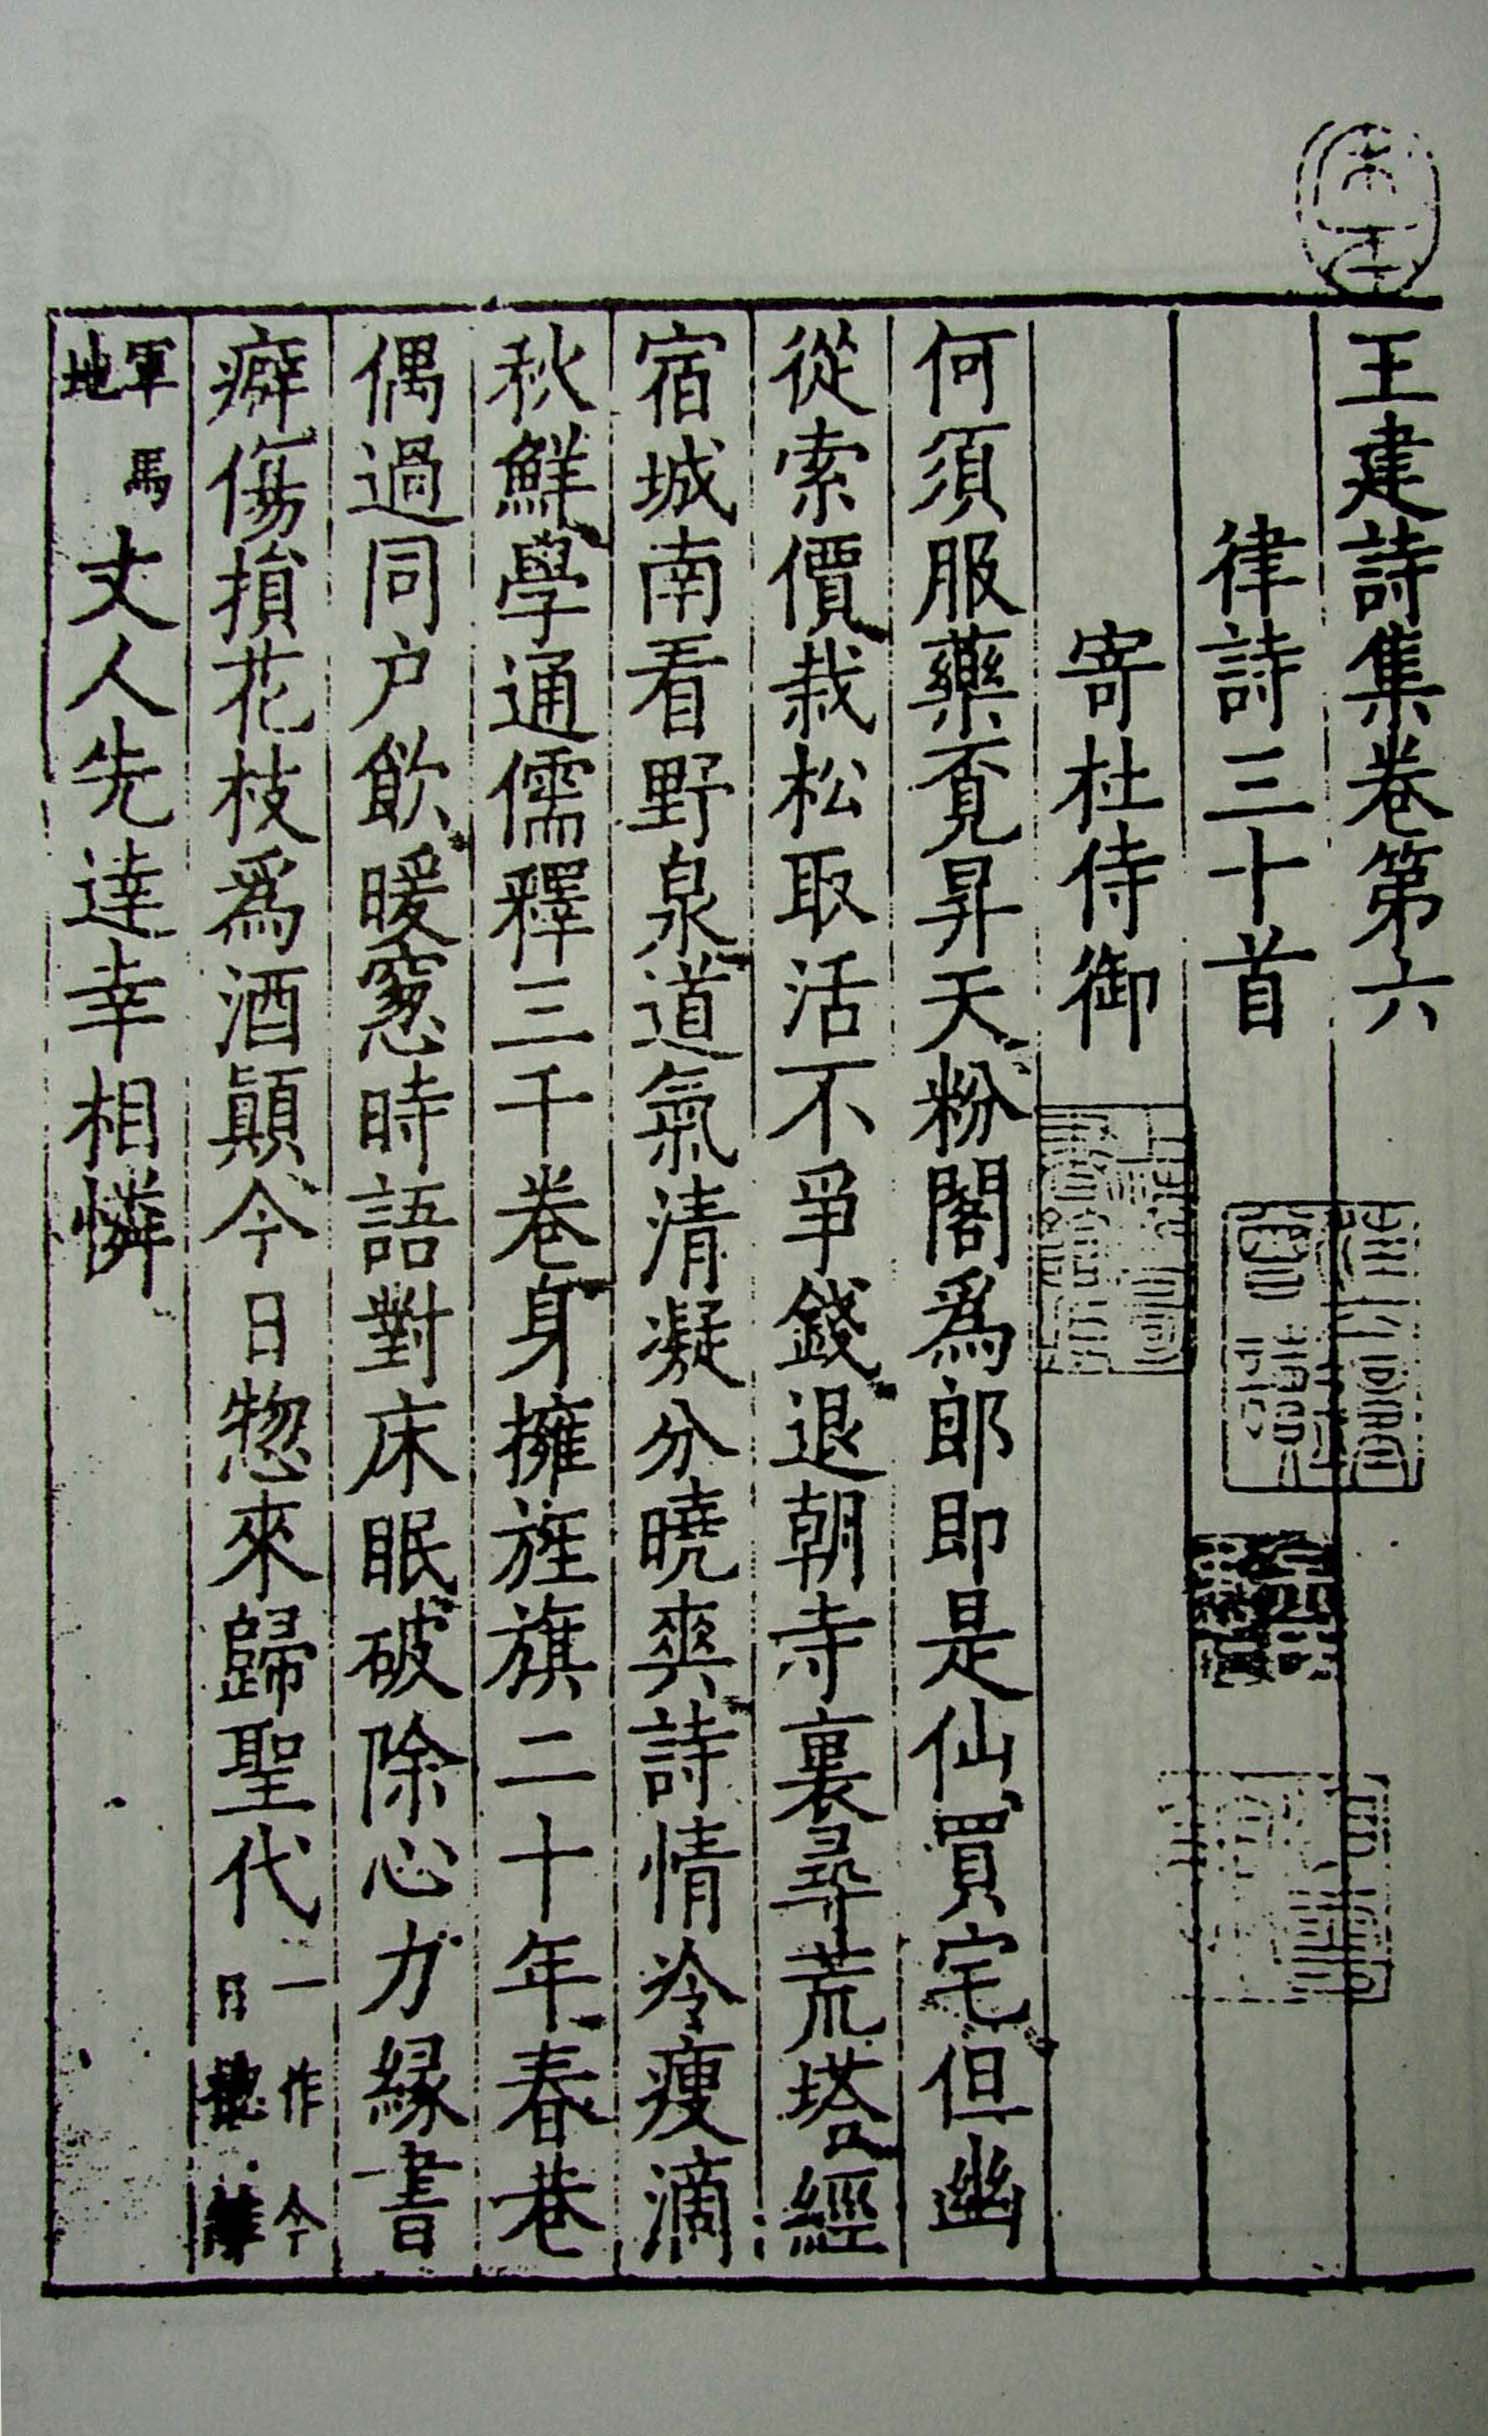 王建詩集卷第六
律詩三十首
寄杜侍御
何須服藥覓昇天粉閣爲郎即是仙買宅但幽
從索價栽松取活不爭錢退朝寺裏尋荒塔經
宿城南看野泉道氣清凝分曉爽詩情冷瘦滴
秋鮮學通儒釋三千卷身擁旌旗二十年春巷
偶過同户飲暖窻時語對床眠破除心力緣書
癖傷損花枝爲酒顛今日惣來歸聖代一作今日
軍馬地丈人先達幸相憐